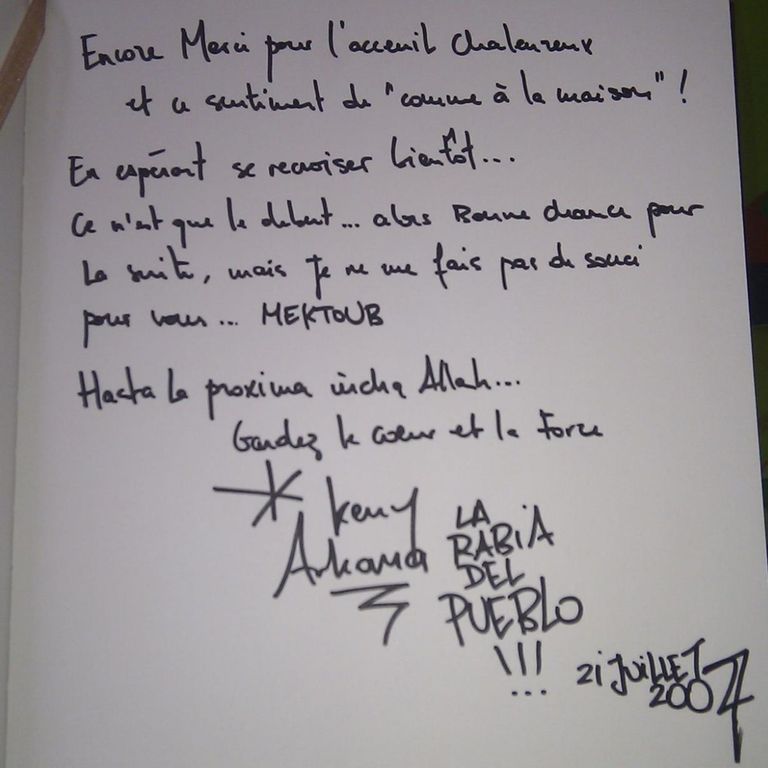 Encore Merci pour l'acceuil chaleureux
et ce sentiment de "comme à la maison" !
En espérant se recroiser bientôt...
Ce n'est que le debut... alors Bonne chance pour
la suite, mais je ne me fais pas de souci
pour vous... MEKTOUB
Hasta la proxima incha Allah...
Gardez le coeur et la Force
Keny
Arkana
LA
RABiA
DEL
PUEBLO
!!!
21 JUiLLET
2007